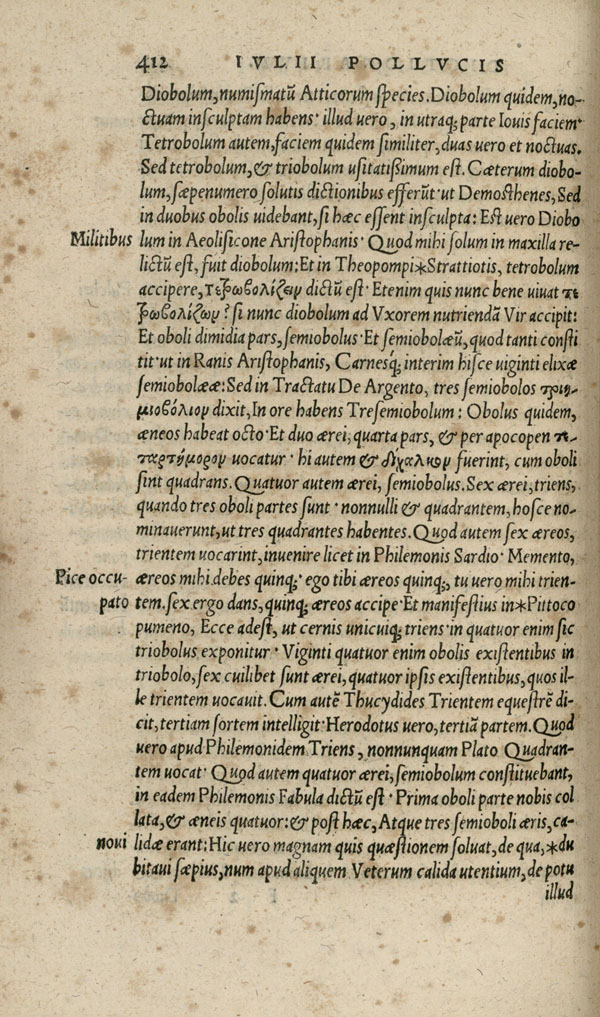 412 IVLII POLLVCIS
Diobolum, numismatũ Atticorum species. Diobolum quidem, no-
ctuam insculptam habens· illud uero, in utraq; parte Iouis faciem·
Tetrobolum autem, faciem quidem similiter, duas uero et noctuas.
Sed tetrobolum, & triobolum usitatissimum est. Cæterum diobo-
lum, sæpenumero solutis dictionibus efferũt·ut Demosthenes, Sed
in duobus obolis uidebant, si hæc essent insculpta: Est uero Diobo
Militibus lum in Aeolisicone Aristophanis· Quod mihi solum in maxilla re-
lictũ est, fuit diobolum: Et in Theopompi*Strattiotis, tetrobolum
accipere, τετρωβολίζειν dictũ est· Etenim quis nunc bene uiuat τε
τρωβολίζων? si nunc diobolum ad Vxorem nutriendã Vir accipit:
Et oboli dimidia pars, semiobolus· Et semiobolæũ, quod tanti consti
tit·ut in Ranis Aristophanis, Carnesq́; interim hisce uiginti elixæ
semiobolææ: Sed in Tractatu De Argento, tres semiobolos τριη-
μιοβόλιον dixit, In ore habens Tresemiobolum: Obolus quidem,
æneos habeat octo· Et duo ærei, quarta pars, & per apocopen τε-
ταρτήμορον uocatur· hi autem & δίχαλκον fuerint, cum oboli
sint quadrans. Quatuor autem ærei, semiobolus. Sex ærei, triens,
quando tres oboli partes sunt· nonnulli & quadrantem, hosce no-
minauerunt, ut tres quadrantes habentes. Quod autem sex æreos,
trientem uocarint, inuenire licet in Philemonis Sardio· Memento,
Pice occu- æreos mihi debes quinq;· ego tibi æreos quinq;, tu uero mihi trien-
pato tem. sex ergo dans, quinq; æreos accipe· Et manifestius in*Pittoco
pumeno, Ecce adest, ut cernis unicuiq; triens·in quatuor enim sic
triobolus exponitur· Viginti quatuor enim obolis existentibus in
triobolo, sex cuilibet sunt ærei, quatuor ipsis existentibus, quos il-
le trientem uocauit. Cum autẽ Thucydides Trientem equestrẽ di-
cit, tertiam sortem intelligit· Herodotus uero, tertiã partem. Quod
uero apud Philemonidem Triens, nonnunquam Plato Quadran-
tem uocat· Quod autem quatuor ærei, semiobolum constituebant,
in eadem Philemonis Fabula dictũ est· Prima oboli parte nobis col
lata, & æneis quatuor: & post hæc, Atque tres semioboli æris, ca-
noui lidæ erant: Hic uero magnam quis quæstionem soluat, de qua, *du
bitaui sæpius, num apud aliquem Veterum calida utentium, de potu
illud